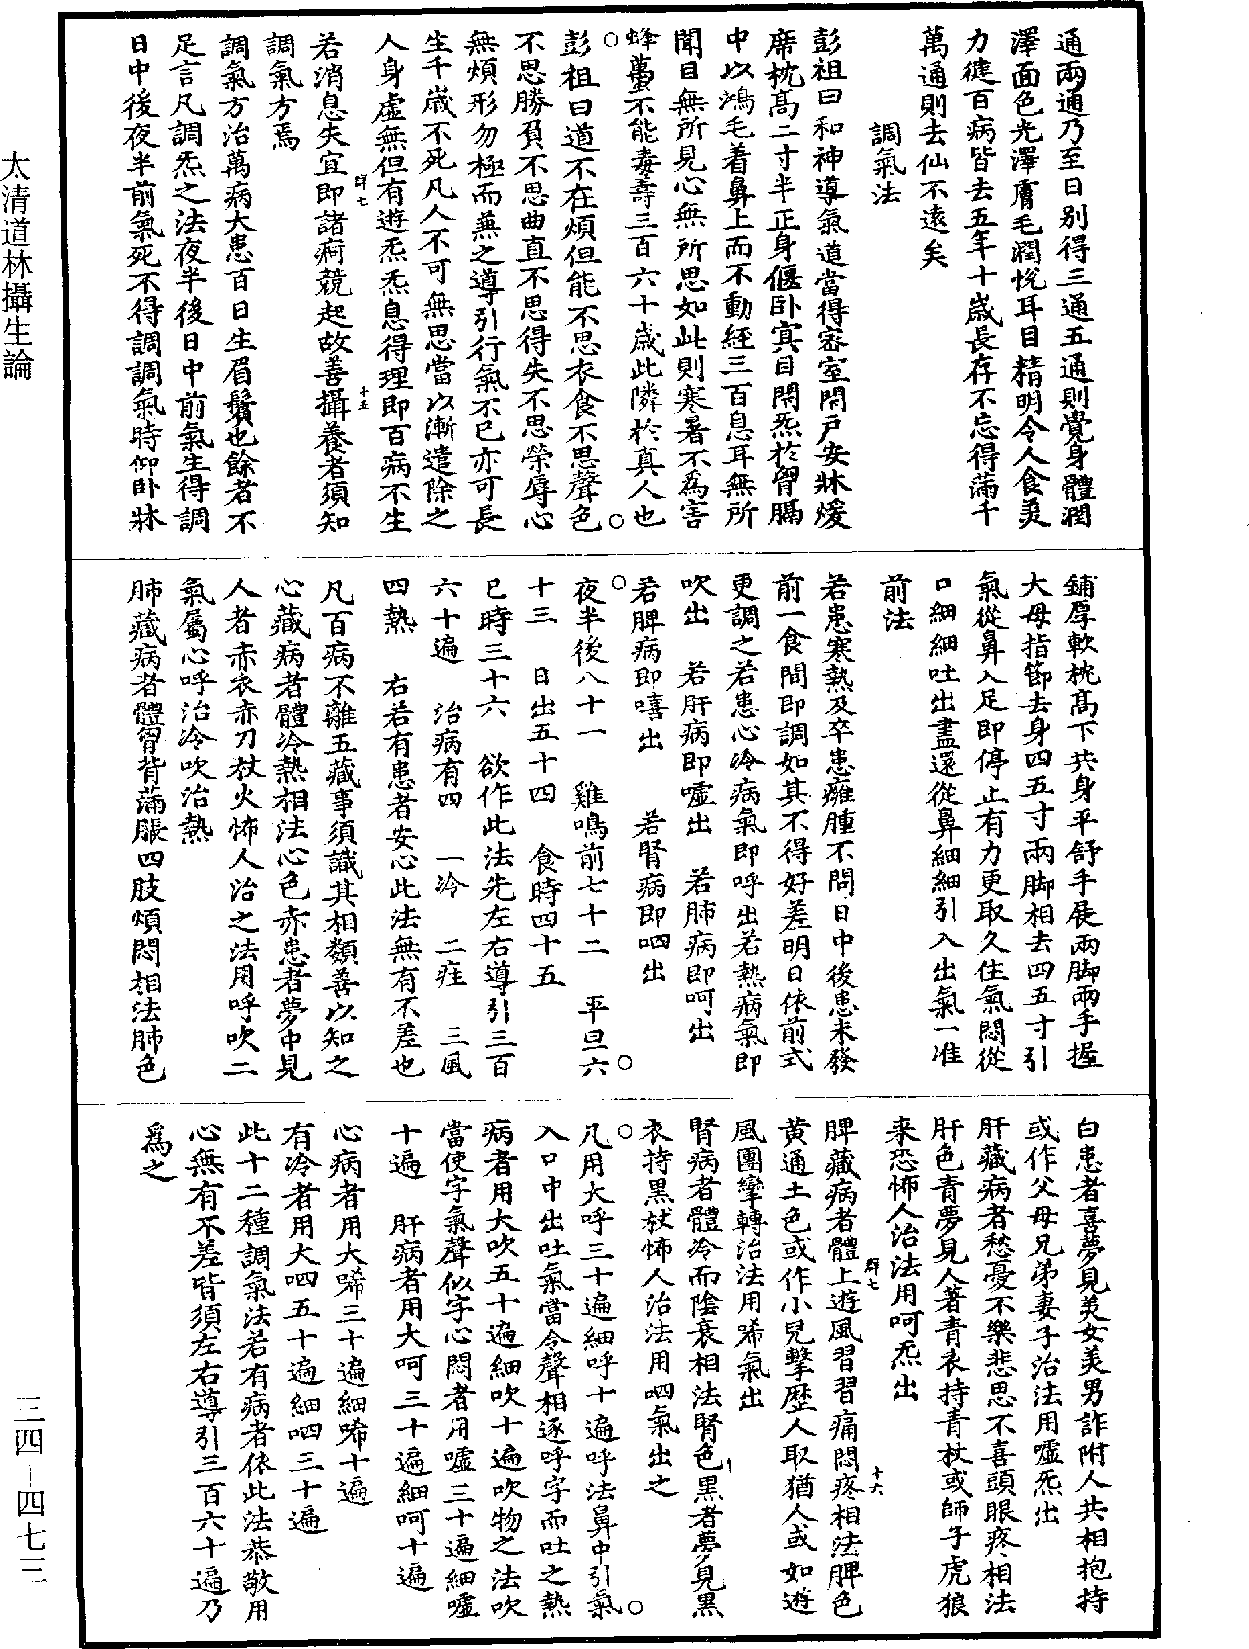 通兩通乃至日別得三通五通則覺身體潤
澤面色光澤膚毛潤悅耳目精明令人食美
力徤百病皆去五年十歲長存不忘得滿千
萬通則去仙不遠矣
調氣法
彭祖曰和神導氣道當得密室閉戶安牀煖
席枕髙二寸半正身偃卧寞目閉炁於胷膈
中以鴻毛着鼻上而不動經三百息耳無所
聞目無所見心無所思如此則寒暑不爲害
蜂蠆不能毒壽三百六十歲此隣於真人也
彭祖曰道不在煩但能不思衣食不思聲色
不思勝負不思曲直不思得失不思榮辱心
無煩形勿極而兼之導引行氣不已亦可長
生千歲不死凡人不可無思當以漸遣除之
人身虛無但有遊炁炁息得理即百病不生
若消息失宜即諸疴競起故善攝養者須知
調氣方焉
調氣方治萬病大患百日生眉鬚也餘者不
足言凡調炁之法夜半後日中前氣生得調
日中後夜半前氣死不得調調氣時仰卧牀
群七
十五
鋪厚軟枕髙下共身平舒手展兩脚兩手握
大母指節去身四五寸兩脚相去四五寸引
氣從鼻入足即停止有力更取久住氣悶從
口細細吐出盡還從鼻細細引入出氣一准
前法
若患寒熱及卒患癰腫不問日中後患未發
前一食間即調如其不得好差明日依前式
更調之若患心冷病氣即呼出若熱病氣即
吹出 若肝病即噓出 若肺病即呵出
若脾病即嘻出 若腎病即呬出
夜半後八十一 雞鳴前七十二 平旦六
十三 日出五十四 食時四十五
巳時三十六 欲作此法先左右導引三百
六十遍 治病有四 一冷 二疰 三風
四熱 右若有患者安心此法無有不差也
凡百病不離五藏事須識其相類善以知之
心藏病者體冷熱相法心色赤患者夢中見
人者赤衣赤刀杖火怖人治之法用呼吹二
氣屬心呼治冷吹治熱
肺藏病者體胷背滿脹四肢煩悶相法肺色
白患者喜夢見美女美男詐附人共相抱持
或作父母兄弟妻子治法用噓炁出
肝藏病者愁憂不樂悲思不喜頭眼疼相法
肝色青夢見人著青衣持青杖或師子虎狼
来恐怖人治法用呵炁出
脾藏病者體上遊風習習痛悶疼相法脾色
黃通土色或作小兒擊歷人取猶人或如遊
風團欒轉治法用唏氣出
腎病者體冷而陰衰相法腎色黑者夢見黑
衣持黑杖怖人治法用呬氣出之
凡用大呼三十遍細呼十遍呼法鼻中引氣
入口中出吐氣當令聲相逐呼字而吐之熱
病者用大吹五十遍細吹十遍吹物之法吹
當使字氣聲似字心悶者用噓三十遍細噓
十遍 肝病者用大呵三十遍細呵十遍
心病者用大唏三十遍細唏十遍
有冷者用大呬五十遍細呬三十遍
此十二種調氣法若有病者依此法恭敬用
心無有不差皆須左右導引三百六十遍乃
爲之
群七
十六
太清道林攝生論
三四—四七三